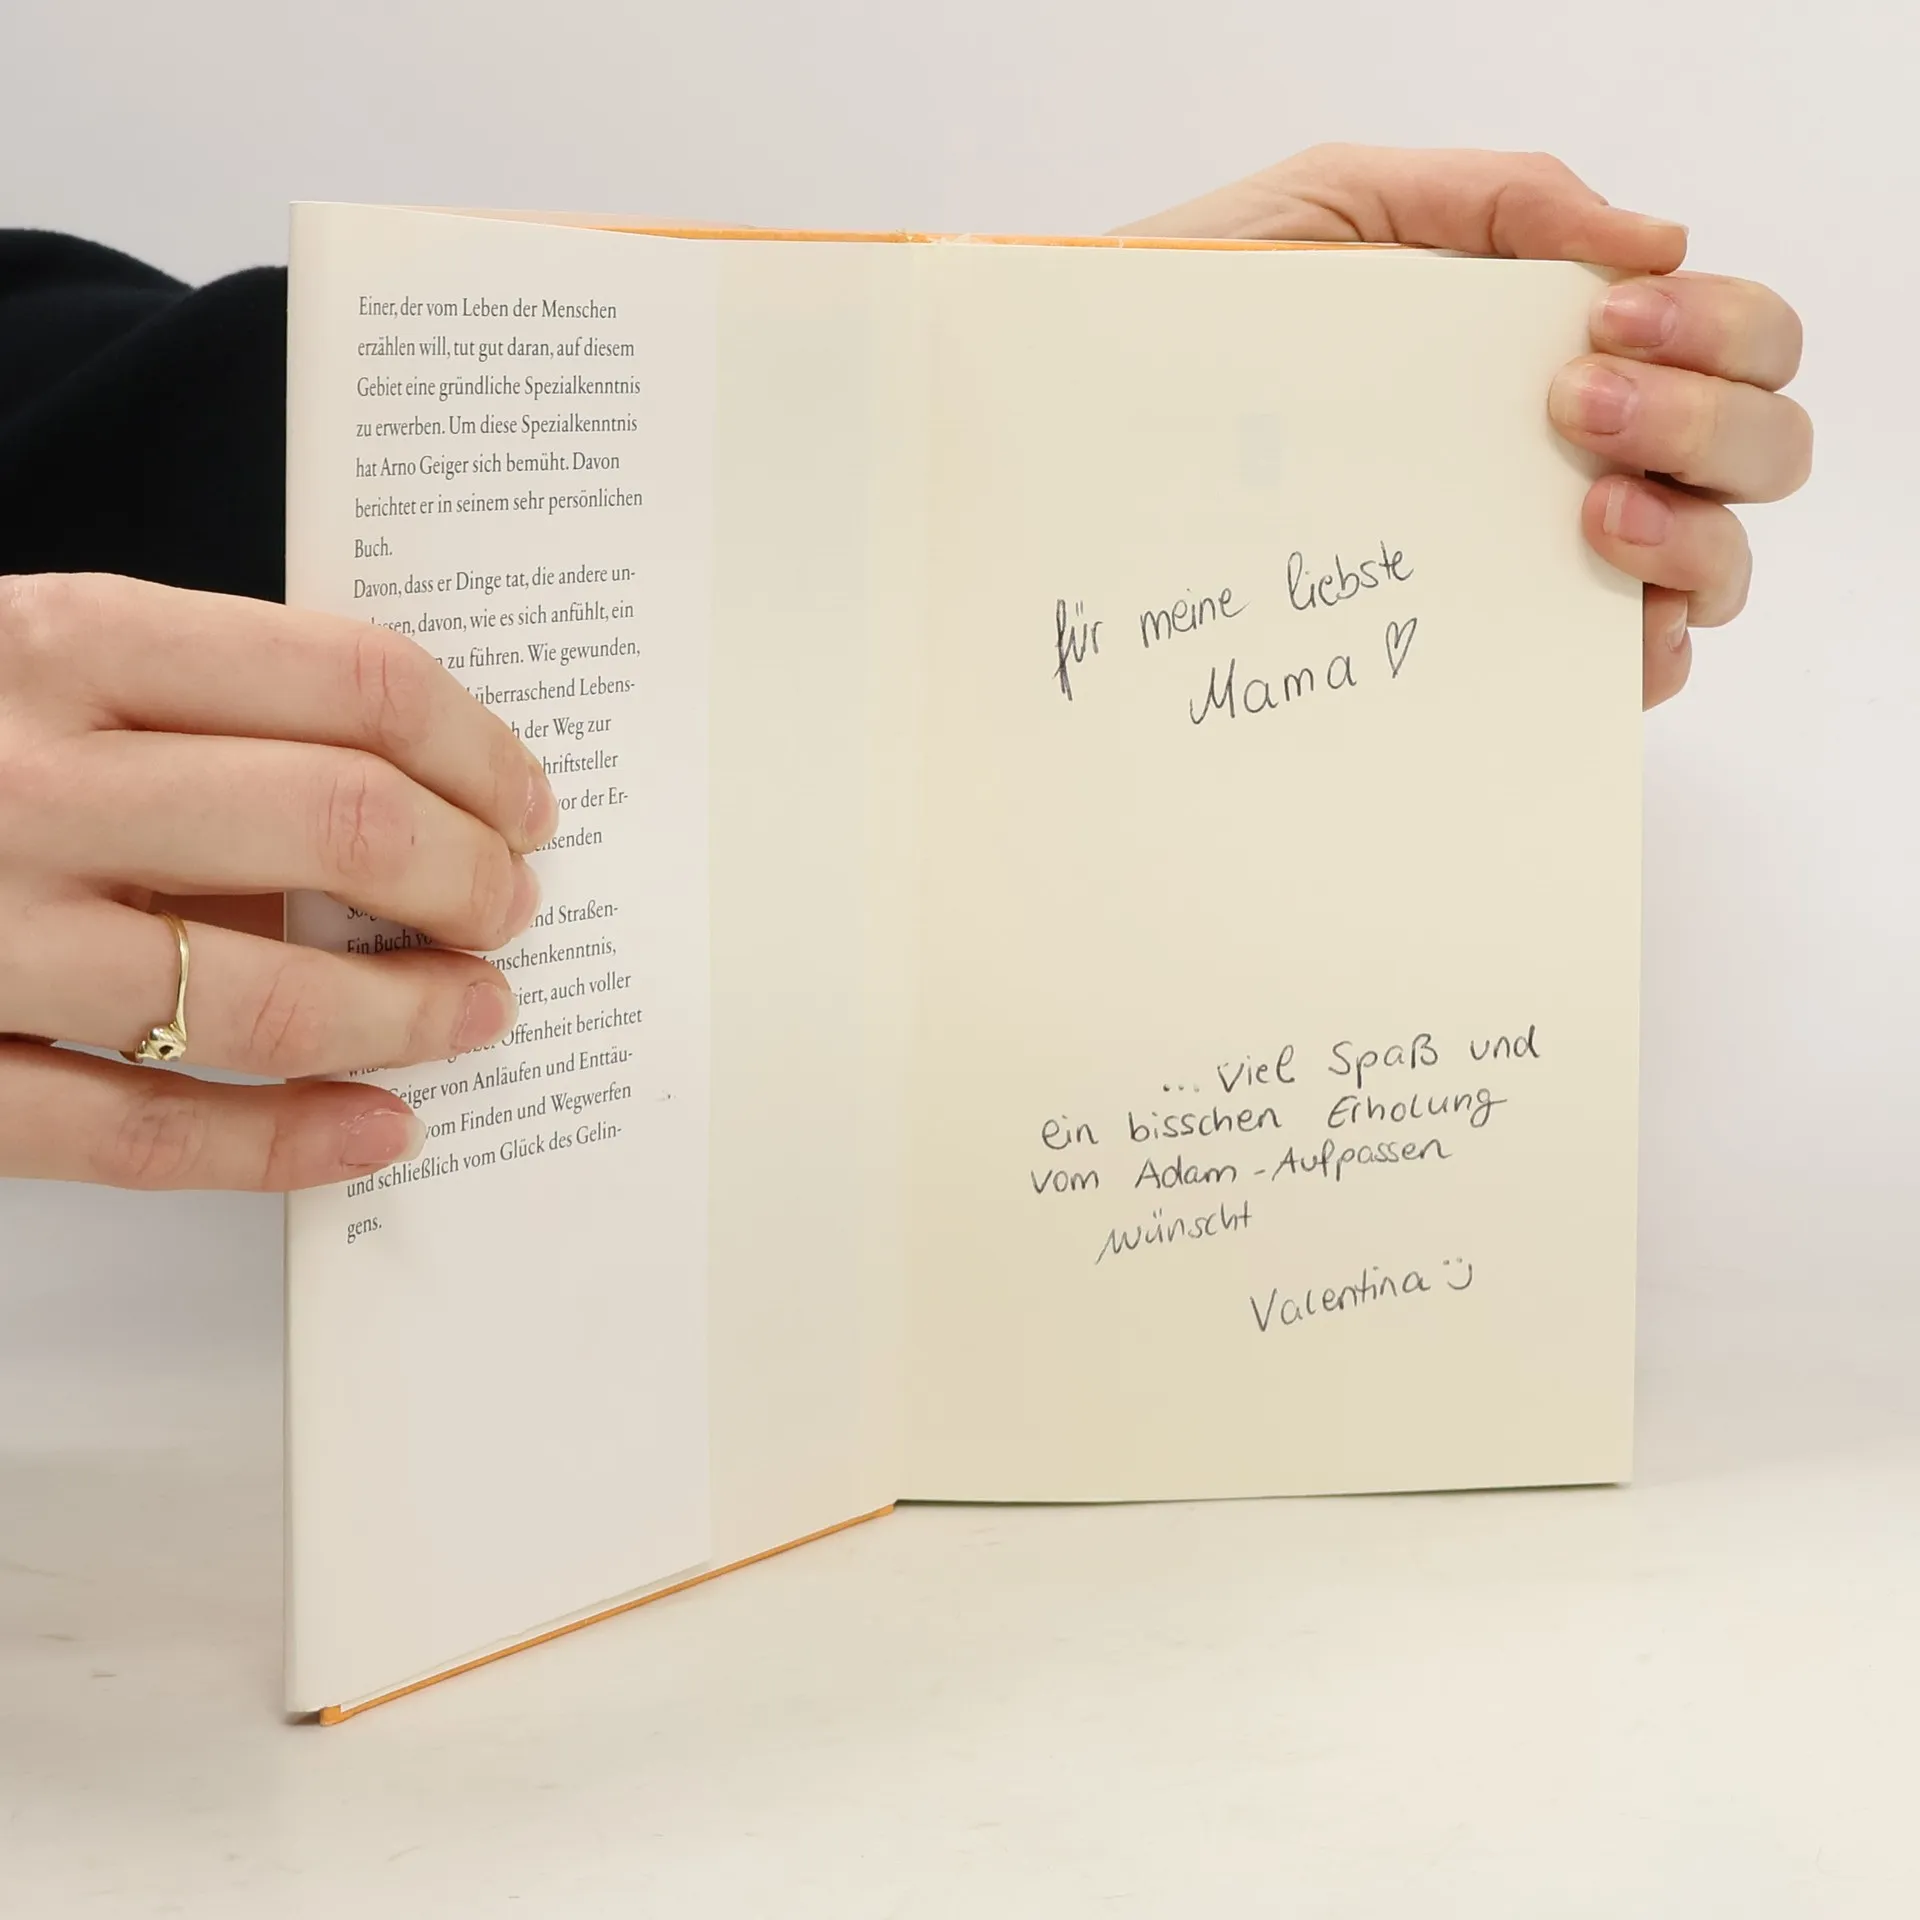 Einer, der vom Leben der Menschen
erzählen will, tut gut daran, auf diesem
Gebiet eine gründliche Spezialkenntnis
zu erwerben. Um diese Spezialkenntnis
hat Arno Geiger sich bemüht. Davon
berichtet er in seinem sehr persönlichen
Buch.
Davon, dass er Dinge tat, die andere un-
davon, wie es sich anfühlt, ein
zu führen. Wie gewunden,
überraschend Lebens-
der Weg zur
vor der Er-
nd Straßen-
Ein Buch
enschenkenntnis,
auch voller
Offenheit berichtet
Geiger von Anläufen und Enttäu-
vom Finden und Wegwerfen
und schließlich vom Glück des Gelin-
gens.
für meine liebste
Mama ♡
... viel Spaß und
ein bisschen Erholung
vom Adam-Aufpassen
wünscht
Valentina